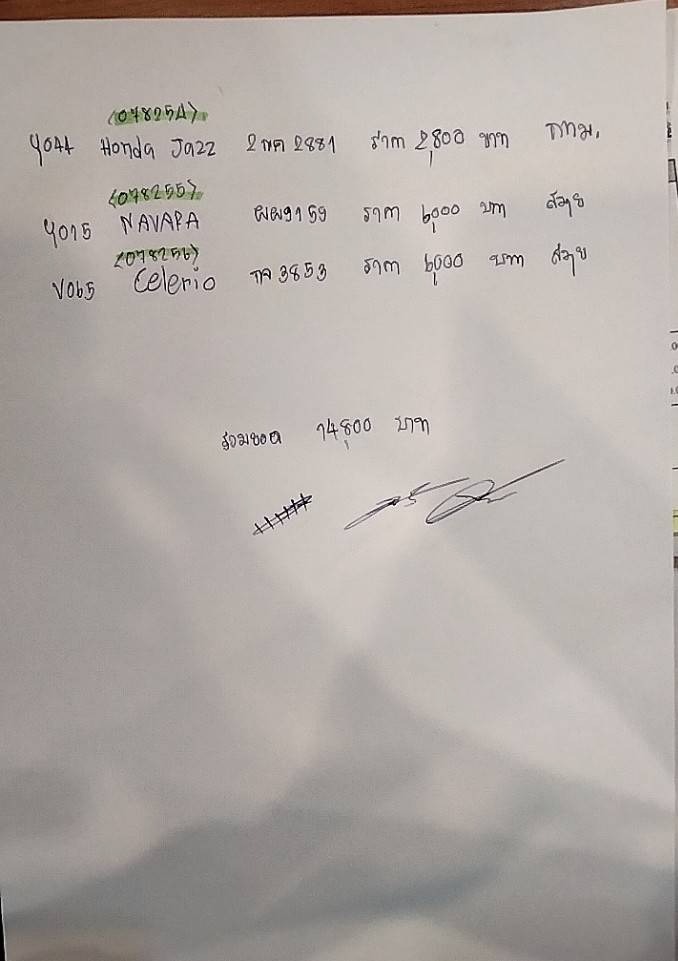 (078254)
Y044 Honda Jazz 2กศ 2881 ราคา 2,800 บาท กทม.
(078255)
Y015 NAVARA ผผ9159 ราคา 6,000 บาท สวย
(078256)
V065 Celerio กจ 3853 ราคา 6,000 บาท สวย
รวมยอด 14,800 บาท